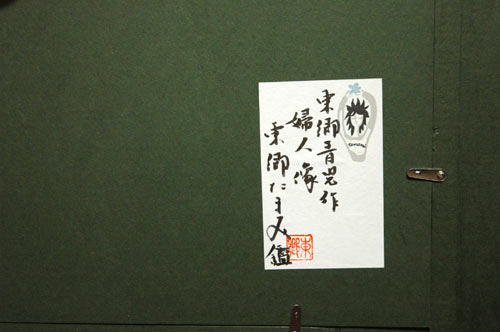 東郷青児作
婦人像
東郷たまみ鑑
東郷